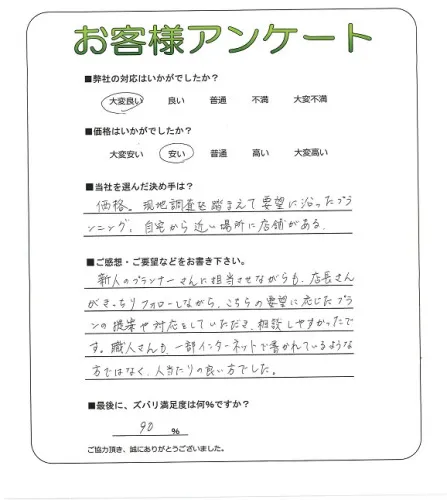 お客様アンケート
■弊社の対応はいかがでしたか?
大変良い 良い 普通 不満 大変不満
■価格はいかがでしたか?
大変安い 安い 普通 高い 大変高い
■当社を選んだ決め手は?
価格。現地調査を踏まえて要望に沿ったプラ
ンニング。自宅から近い場所に店舗がある.
■ご感想・ご要望などをお書き下さい。
新人のプランナーさんに担当させながらも、店長さん
がきっちりフォローしながら、こちらの要望に応じたプラ
ンの提案や対応をしていただき、相談しやすかったで
す。職人さんも、一部インターネットで書かれているような
方ではなく、人当たりの良い方でした。
■最後に、ズバリ満足度は何%ですか?
90 %
ご協力頂き、誠にありがとうございました。